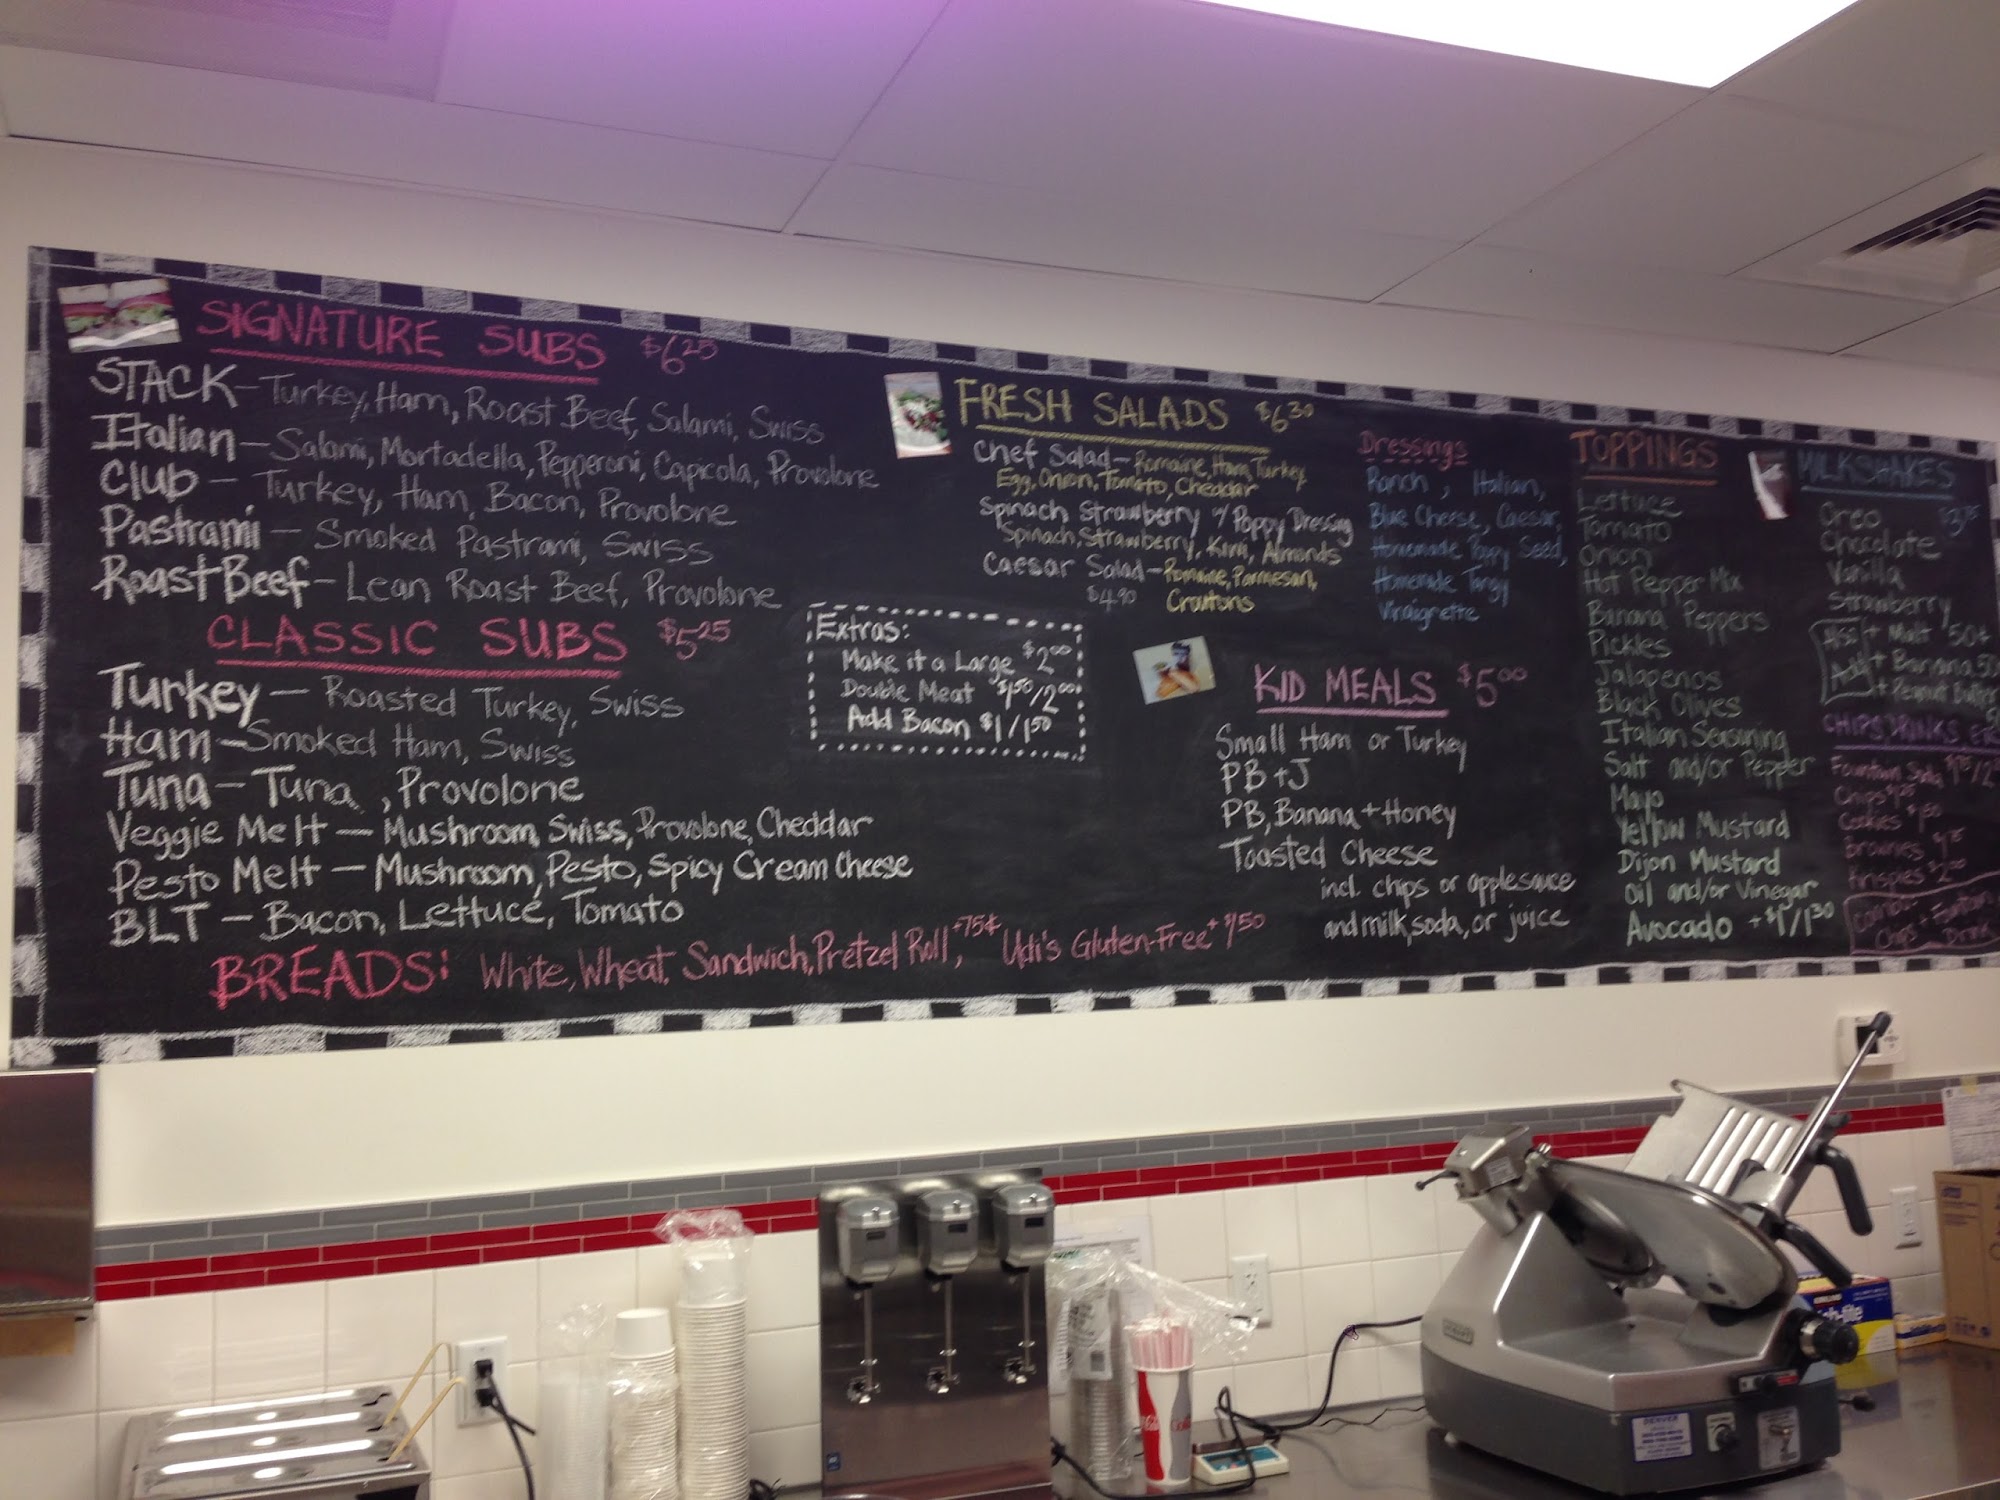 SIGNATURE SUBS $6.25
STACK - Turkey, Ham, Roast Beef, Salami, Swiss
Italian - Salami, Mortadella, Pepperoni, Capicola, Provolone
Club - Turkey, Ham, Bacon, Provolone
Pastrami - Smoked Pastrami, Swiss
Roast Beef - Lean Roast Beef, Provolone
CLASSIC SUBS $5.25
Turkey - Roasted Turkey, Swiss
Ham - Smoked Ham, Swiss
Tuna - Tuna, Provolone
Veggie Melt - Mushroom, Swiss, Provolone, Cheddar
Pesto Melt - Mushroom, Pesto, Spicy Cream Cheese
BLT - Bacon, Lettuce, Tomato
BREADS: White, Wheat, Sandwich, Pretzel Roll +75¢, Udi's Gluten-Free + $1.50
Extras:
Make it a Large $2.00
Double Meat $1.50/2.00
Add Bacon $1/1.50
FRESH SALADS $6.30
Chef Salad - Romaine, Ham, Turkey
Egg, Onion, Tomato, Cheddar
Spinach Strawberry w/ Poppy Dressing
Spinach, Strawberry, Kiwi, Almonds
Caesar Salad - Romaine, Parmesan,
$4.90 Croutons
Dressings
Ranch, Italian,
Blue Cheese, Caesar,
Homemade Poppy Seed,
Homemade Tangy
Vinaigrette
KID MEALS $5.00
Small Ham or Turkey
PB + J
PB, Banana + Honey
Toasted Cheese
incl. chips or applesauce
and milk, soda, or juice
TOPPINGS
Lettuce
Tomato
Onion
Hot Pepper Mix
Banana Peppers
Pickles
Jalapenos
Black Olives
Italian Seasoning
Salt and/or Pepper
Mayo
Yellow Mustard
Dijon Mustard
Oil and/or Vinegar
Avocado + $1/1.30
MILKSHAKES
Oreo
Chocolate
Vanilla
Strawberry
+ Malt 50¢
+ Banana .50
+ Peanut Butter
CHIPS DRINKS
Fountain Soda
Chips
Cookies
Brownies
Krispies $2.00
Combo:
Chips + Fountain
Drink